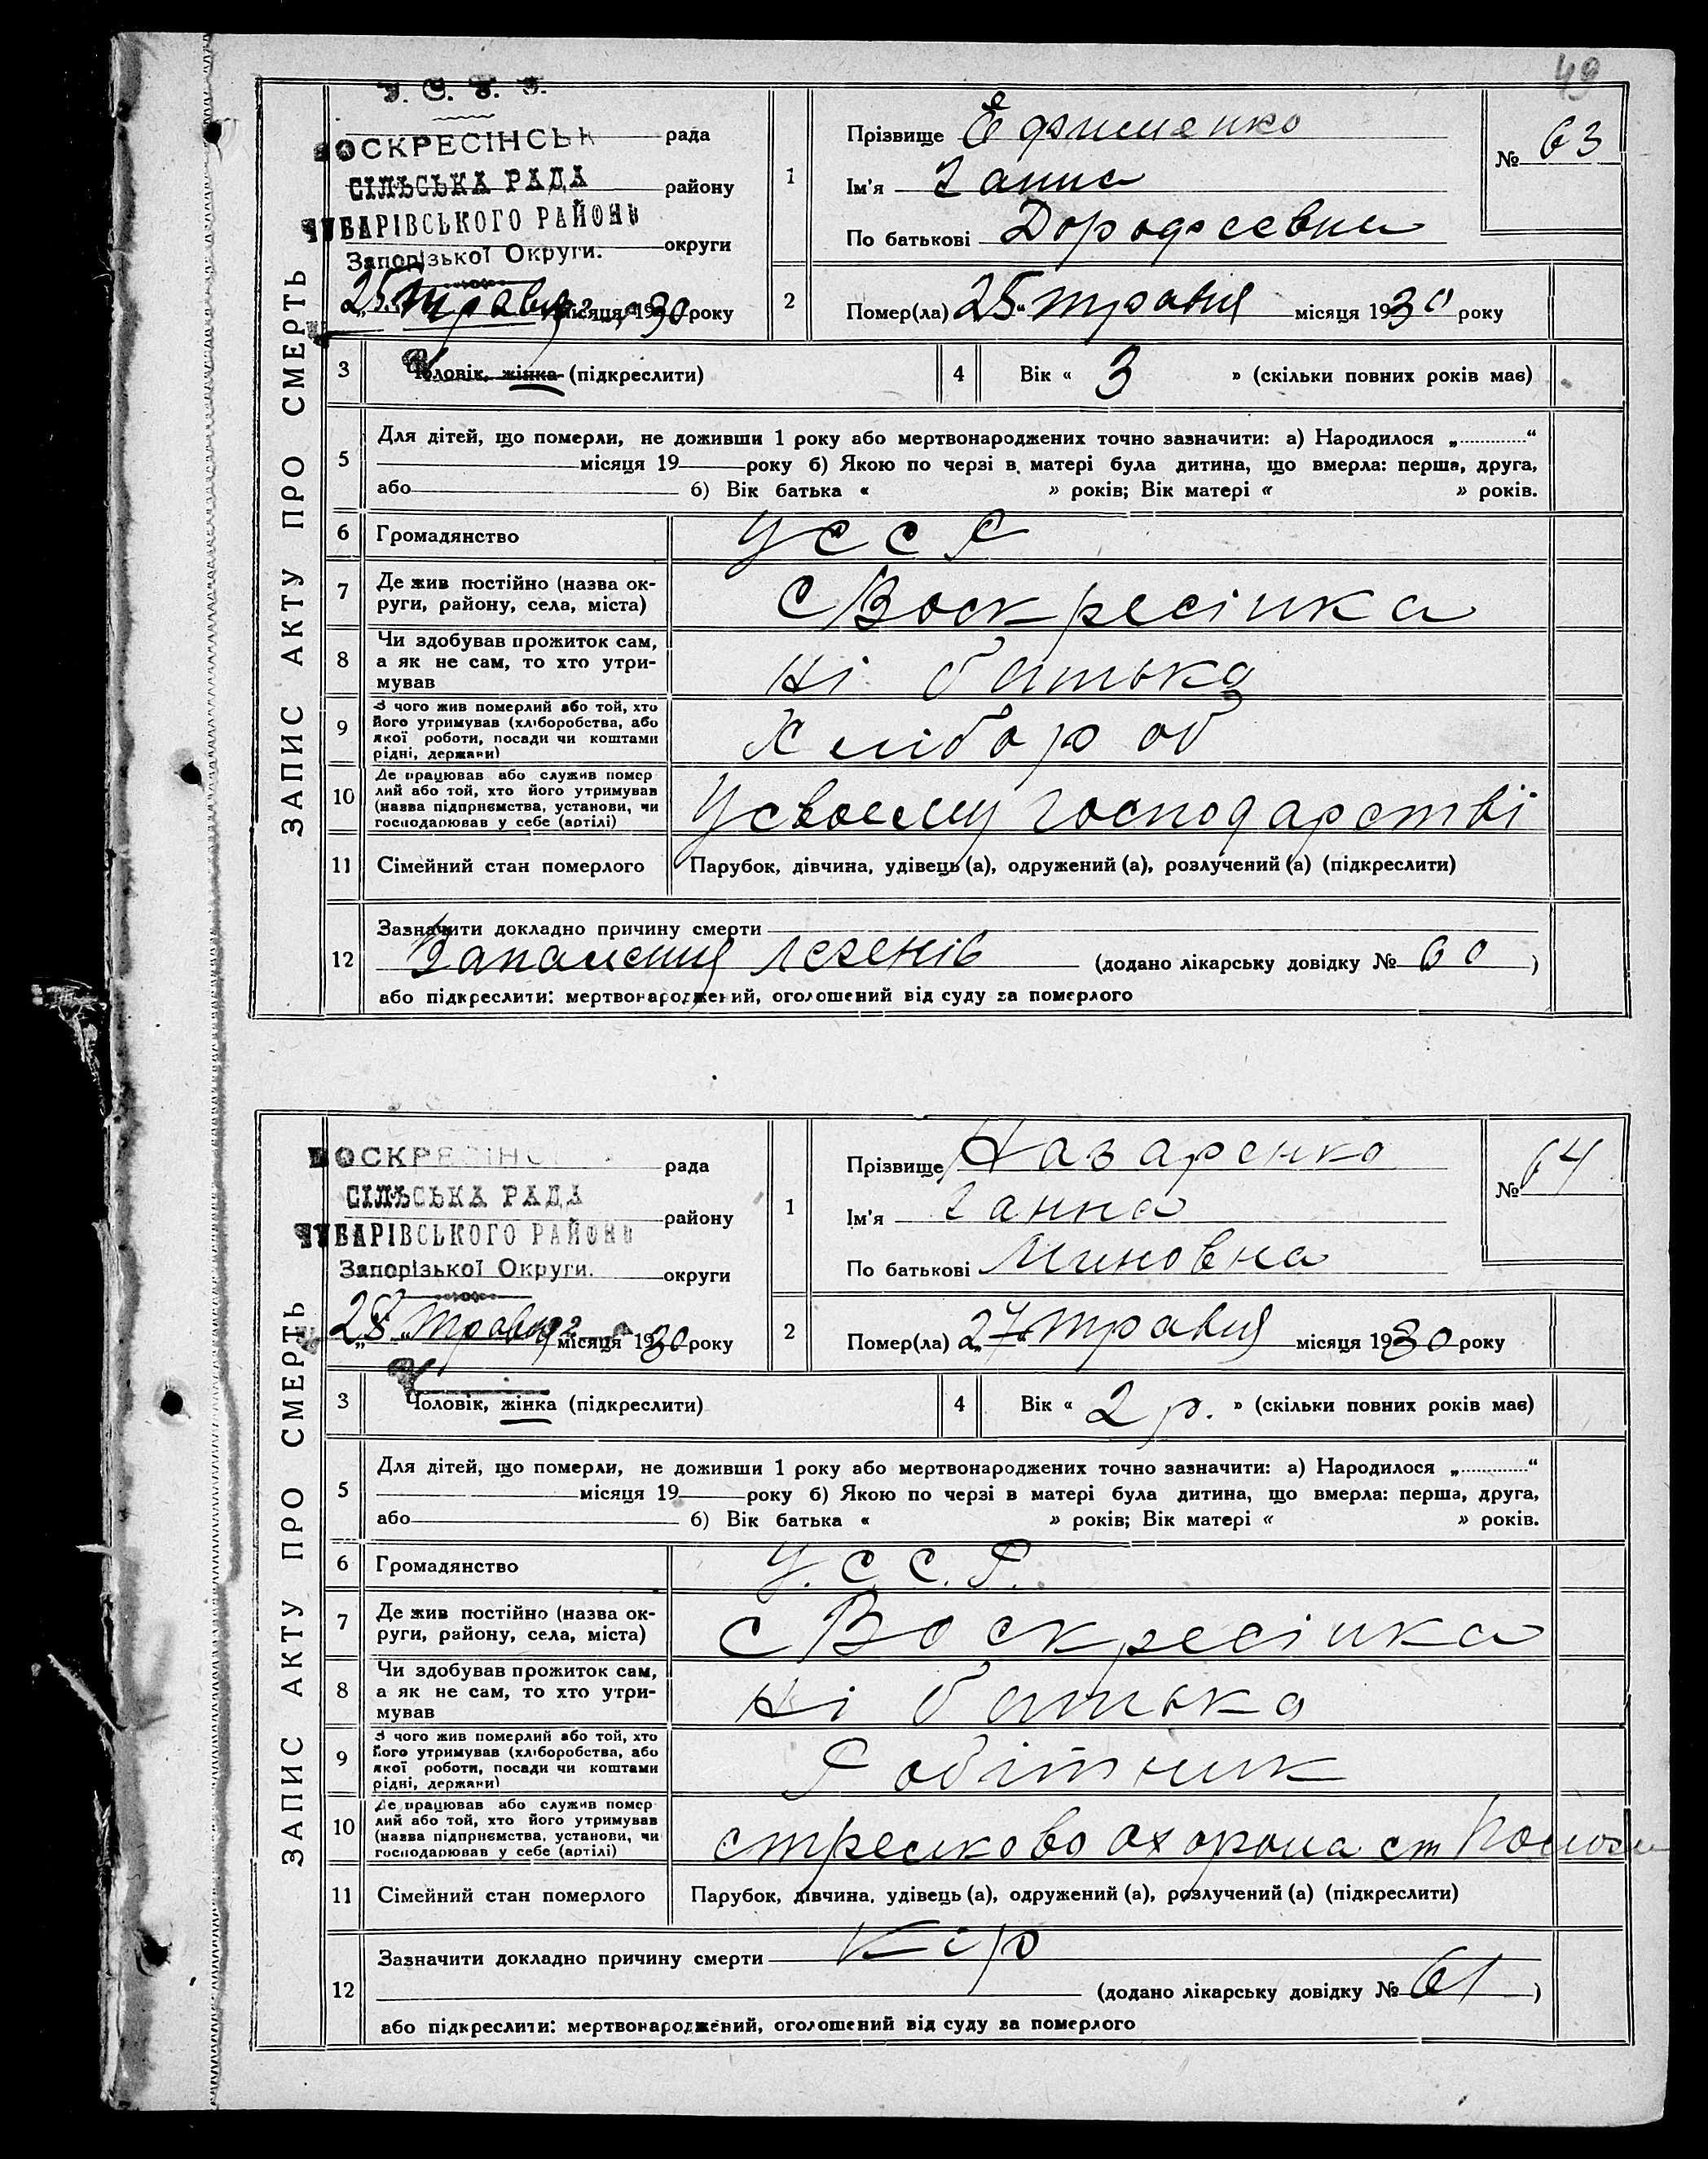 49
У. С. Р. Р.
ВОСКРЕСІНСЬК рада
СІЛЬСЬКА РАДА району
ЧУБАРІВСЬКОГО РАЙОНУ
Запорізької Округи. округи
„25“ травня місяця 1930 року
1 Прізвище Ефименко
Ім'я Ганна
По батькові Дорофеевна
№ 63
2 Помер(ла) 25 травня місяця 1930 року
ЗАПИС АКТУ ПРО СМЕРТЬ
3 Чоловік, жінка (підкреслити)
4 Вік « 3 » (скільки повних років має)
5 Для дітей, що померли, не доживши 1 року або мертвонароджених точно зазначити: а) Народилося „............“
місяця 19 року б) Якою по черзі в матері була дитина, що вмерла: перша, друга,
або б) Вік батька « » років; Вік матері « » років.
6 Громадянство УССР
7 Де жив постійно (назва округи, району, села, міста) с Воскресінка
8 Чи здобував прожиток сам,
а як не сам, то хто утри-
мував Ні батька
9 З чого жив померлий або той, хто
його утримував (хліборобства, або
якої роботи, посади чи коштами
рідні, держави) Хлібороб
10 Де працював або служив помер
лий або той, хто його утримував
(назва підприємства, установи, чи
господарював у себе (артілі) У своему господарстві
11 Сімейний стан померлого Парубок, дівчина, удівець (а), одружений (а), розлучений (а) (підкреслити)
12 Зазначити докладно причину смерти
Запалення легенів (додано лікарську довідку № 60 )
або підкреслити: мертвонароджений, оголошений від суду за померлого
ВОСКРЕСІНС рада
СІЛЬСЬКА РАДА
ЧУБАРІВСЬКОГО РАЙОНУ району
Запорізької Округи. округи
„28“ травня місяця 1930 року
1 Прізвище Назаренко
Ім'я Ганна
По батькові Миновна
№ 64
2 Помер(ла) 27 травня місяця 1930 року
ЗАПИС АКТУ ПРО СМЕРТЬ
3 Чоловік, жінка (підкреслити)
4 Вік « 2 р. » (скільки повних років має)
5 Для дітей, що померли, не доживши 1 року або мертвонароджених точно зазначити: а) Народилося „............“
місяця 19 року б) Якою по черзі в матері була дитина, що вмерла: перша, друга,
або б) Вік батька « » років; Вік матері « » років.
6 Громадянство У.С.С.Р.
7 Де жив постійно (назва округи, району, села, міста) с Воскресінка
8 Чи здобував прожиток сам,
а як не сам, то хто утри-
мував Ні батька
9 З чого жив померлий або той, хто
його утримував (хліборобства, або
якої роботи, посади чи коштами
рідні, держави) Робітник
10 Де працював або служив помер
лий або той, хто його утримував
(назва підприємства, установи, чи
господарював у себе (артілі) стрелково охорона ст Пологи
11 Сімейний стан померлого Парубок, дівчина, удівець (а), одружений (а), розлучений (а) (підкреслити)
12 Зазначити докладно причину смерти Кір
(додано лікарську довідку № 61 )
або підкреслити: мертвонароджений, оголошений від суду за померлого